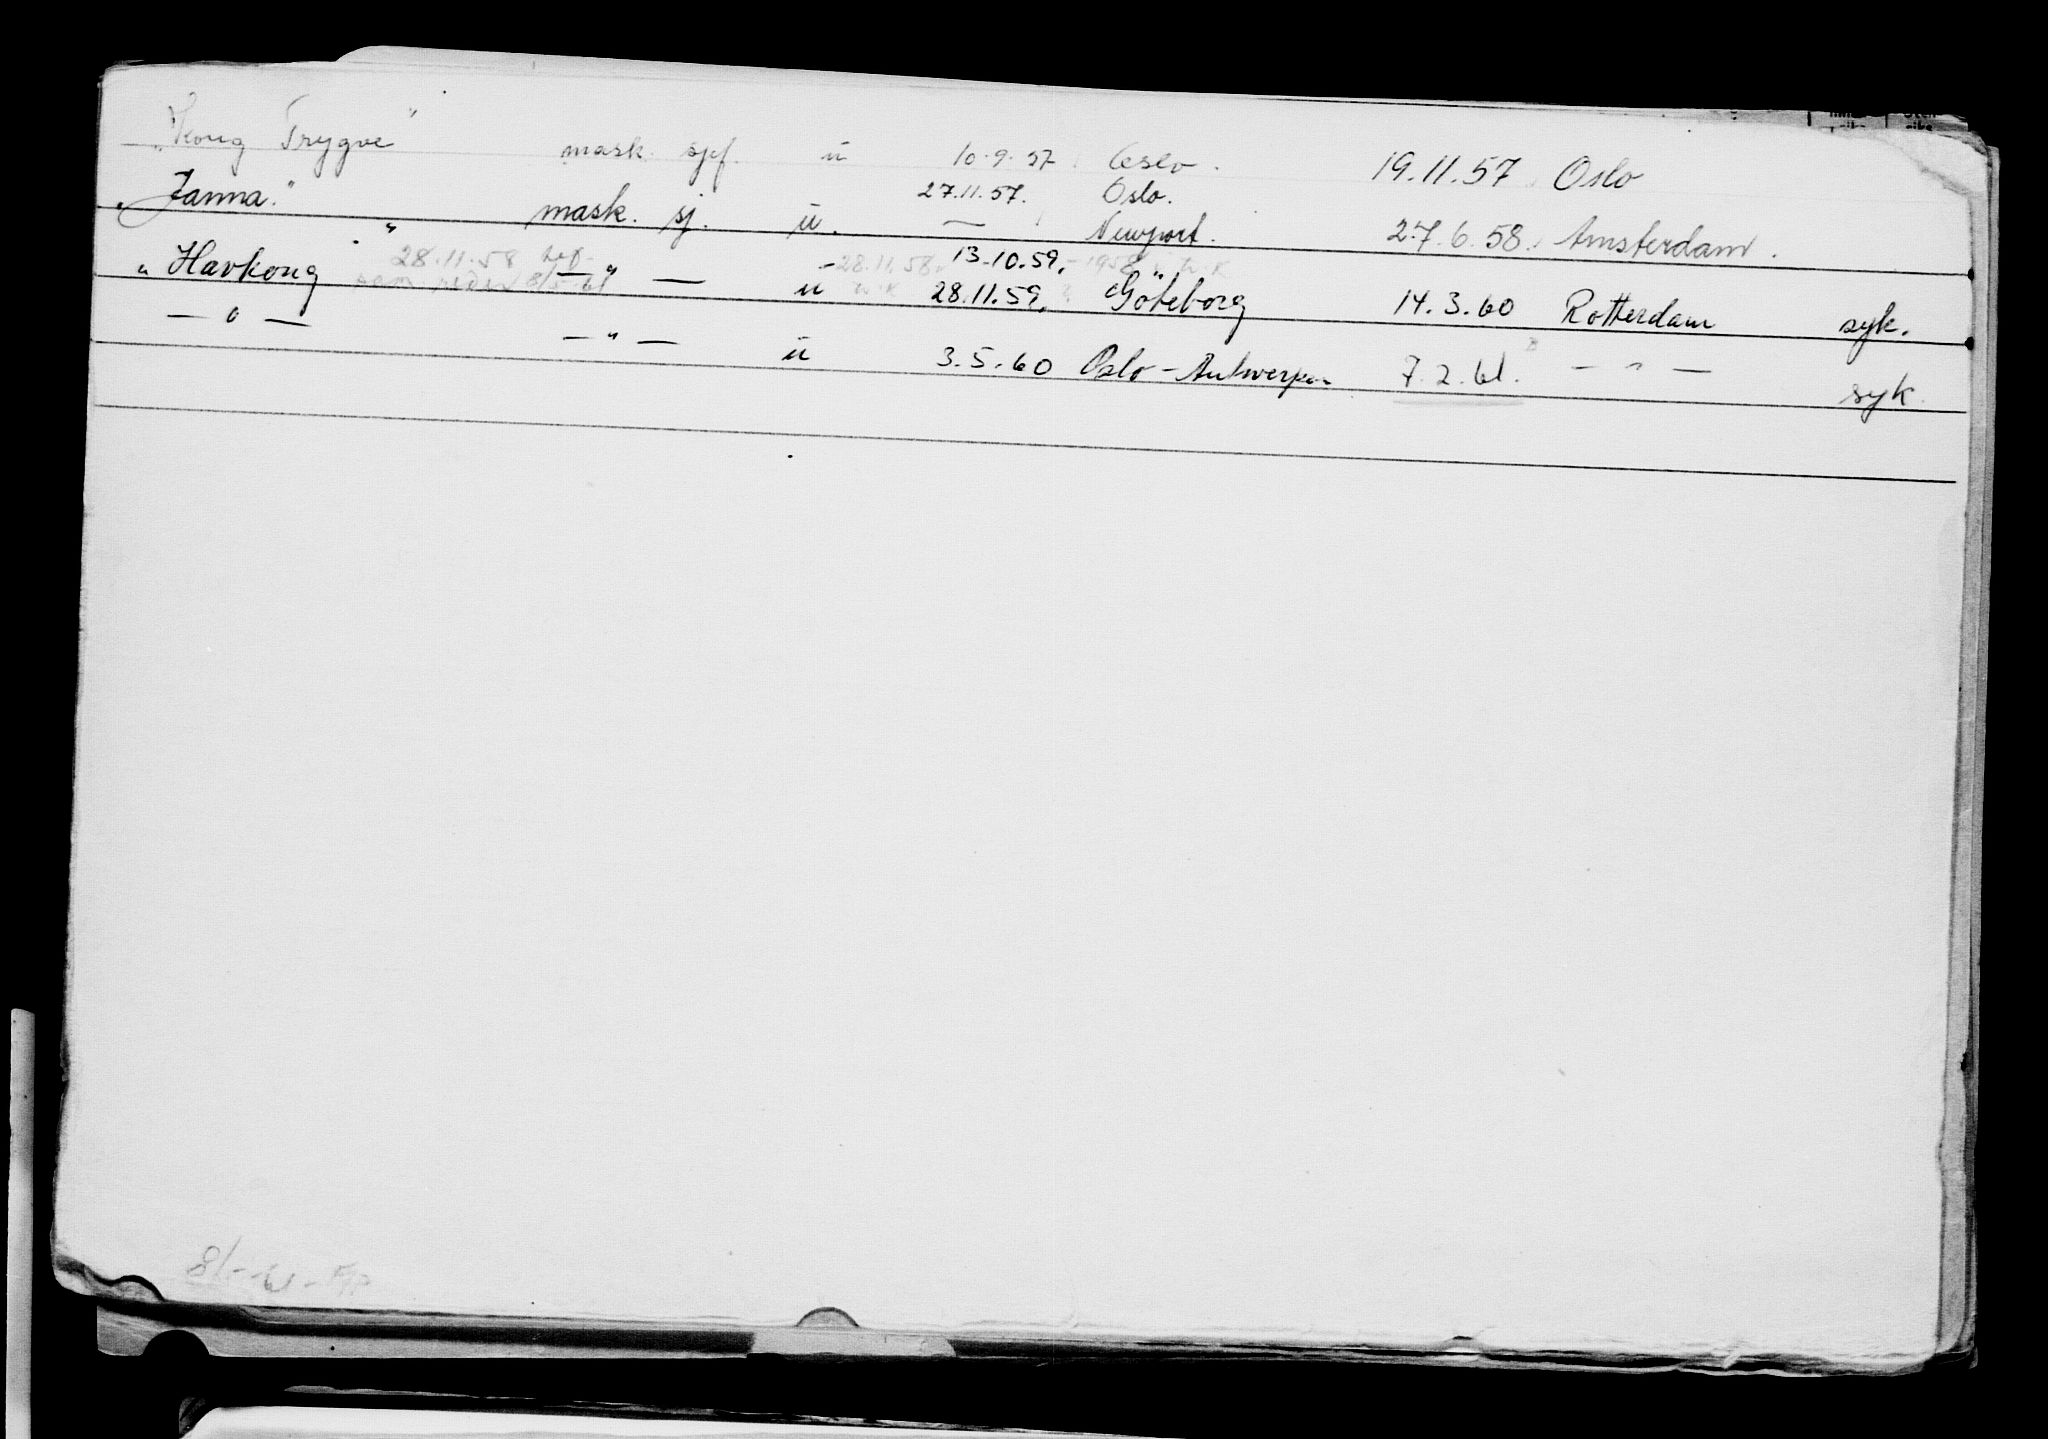 "Kong Trygve" mask. sjef. u 10.9.57. Oslo. 19.11.57 Oslo
"Janna." mask. sj. u. 27.11.57. Oslo. — Newport. 27.6.58. Amsterdam.
28.11.58 28.11.58. 13.10.59. 1958
"Havkong" — " — u 28.11.59. Göteborg 14.3.60 Rotterdam syk.
— " — — " — u 3.5.60 Oslo - Antwerpen 7.2.61. — " — syk.